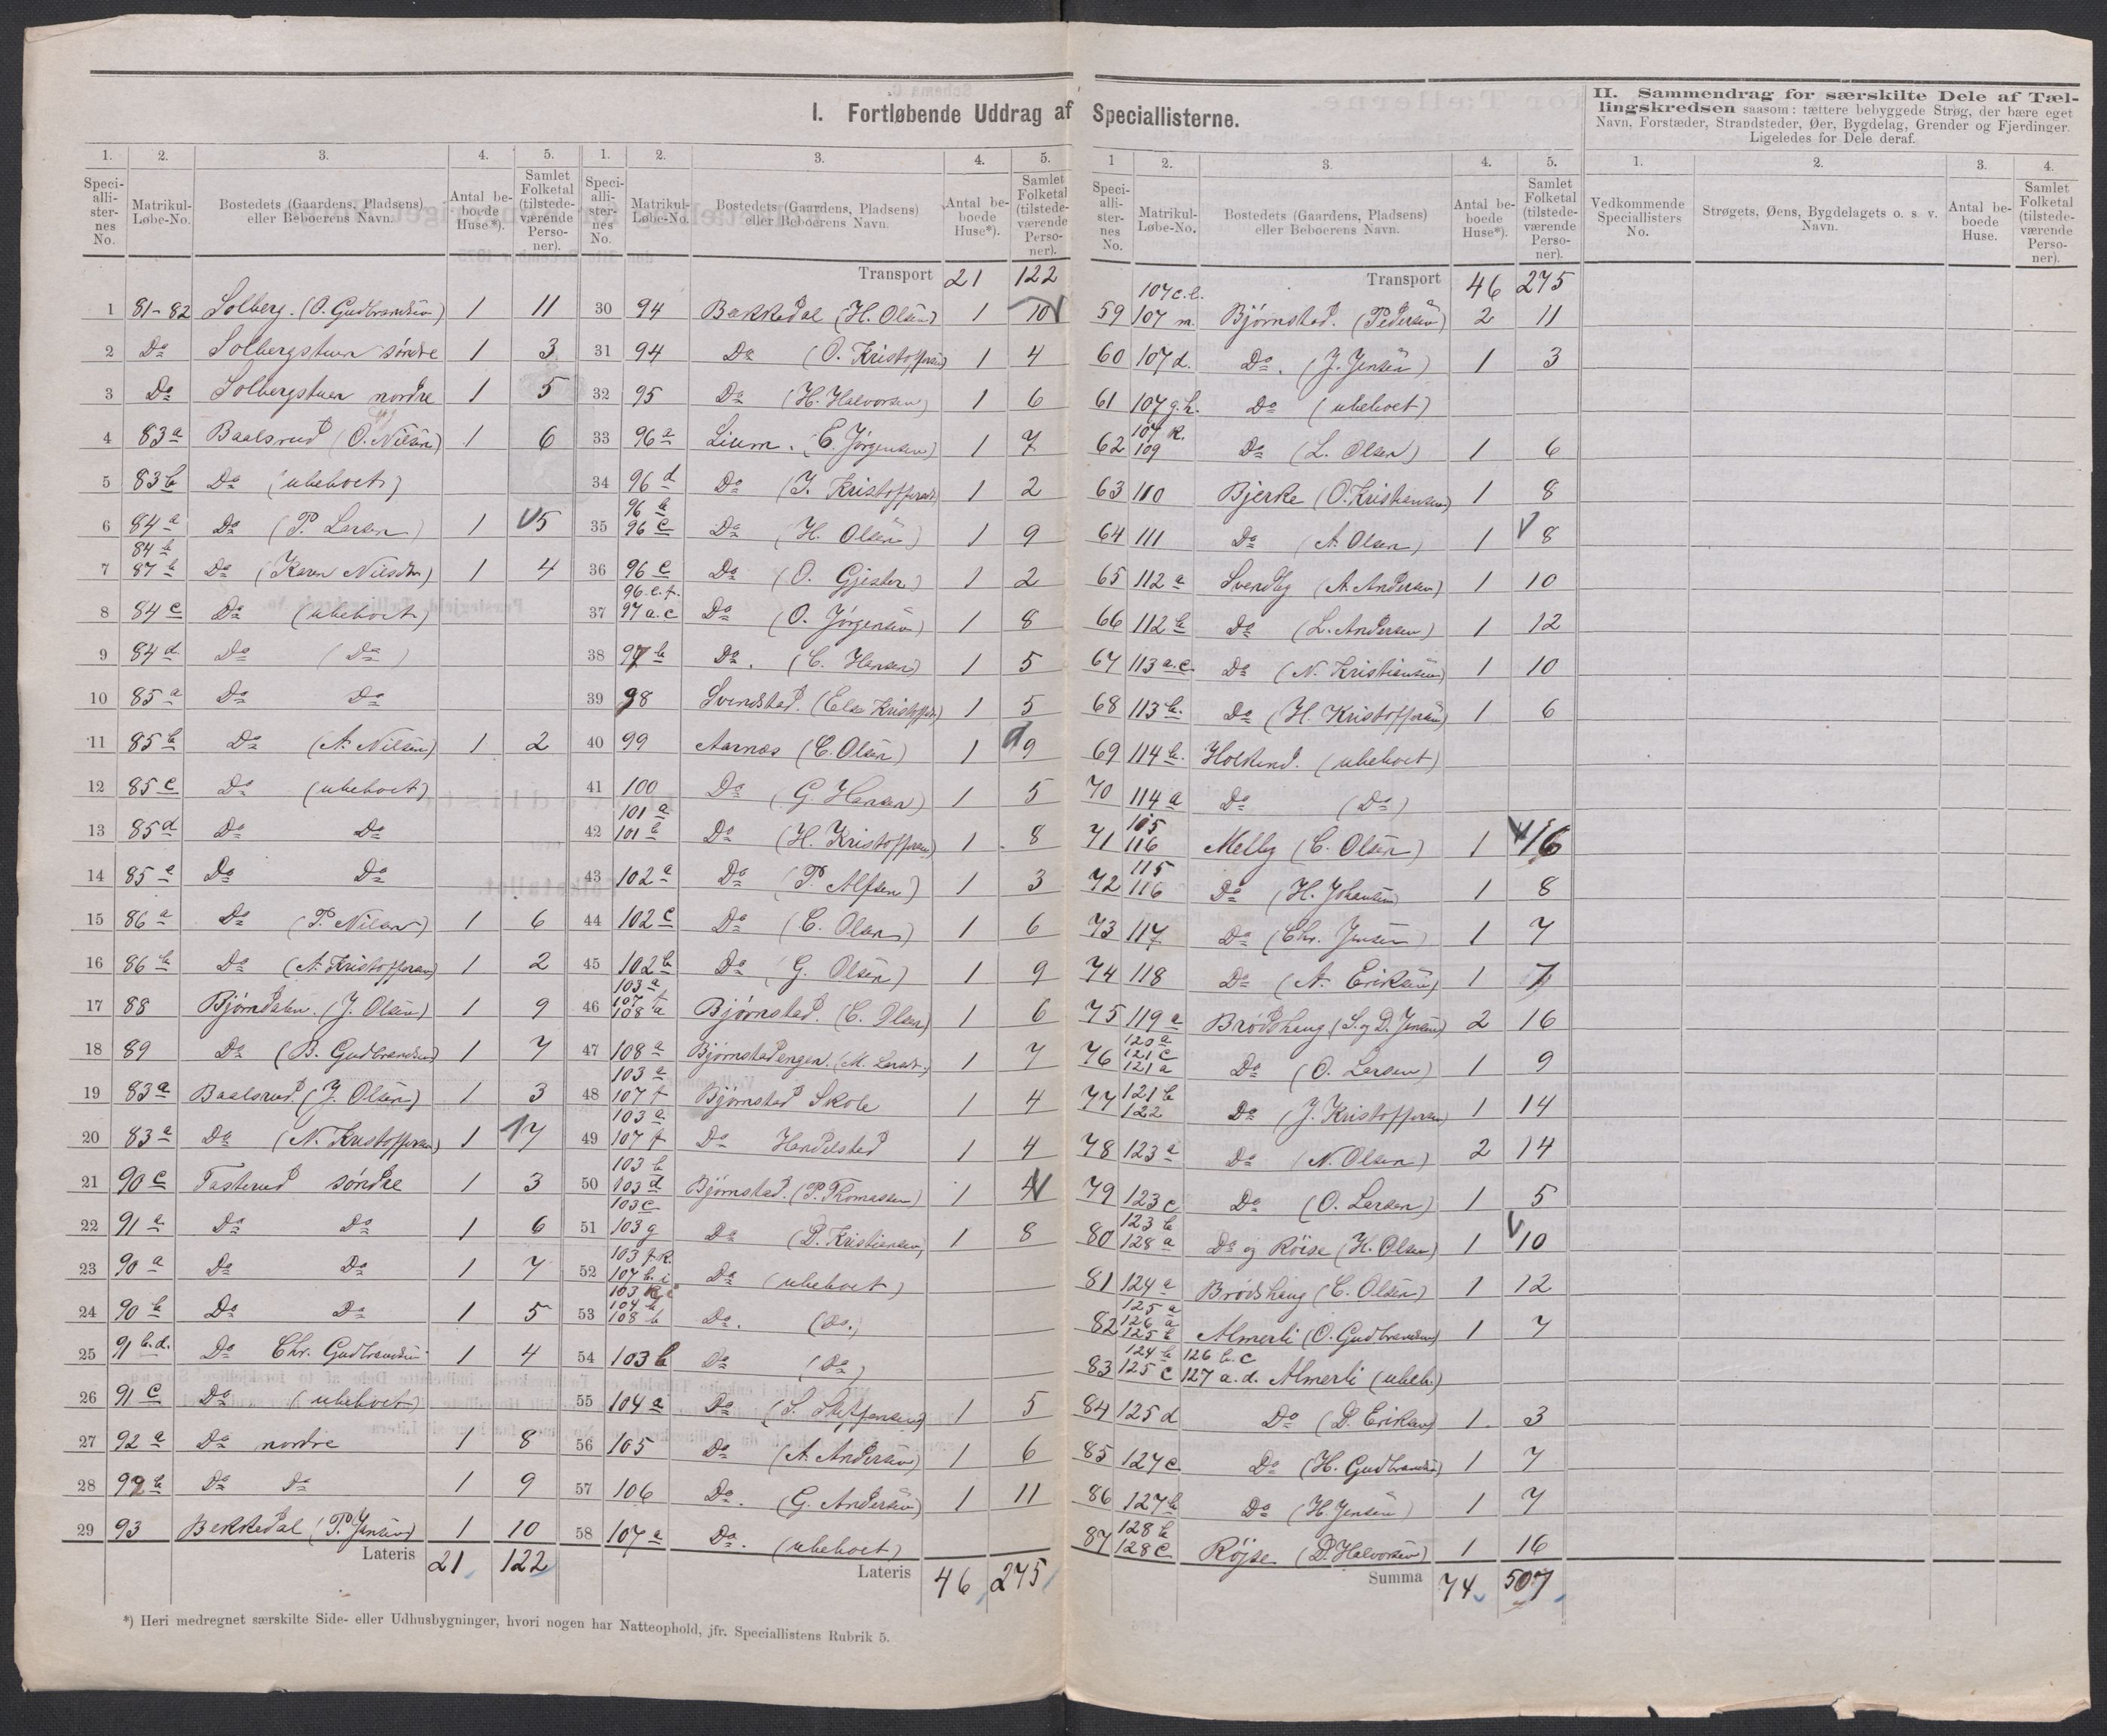 I. Fortløbende Uddrag af Speciallisterne.
II. Sammendrag for særskilte Dele af Tællingskredsen saasom: tættere bebyggede Strøg, der bære eget Navn, Forstæder, Strandsteder, Øer, Bygdelag, Grender og Fjerdinger. Ligeledes for Dele deraf.
1. 2. 3. 4. 5.
Speciallisternes No. Matrikul-Løbe-No. Bostedets (Gaardens, Pladsens) eller Beboerens Navn. Antal beboede Huse*). Samlet Folketal (tilstedeværende Personer).
1 81-82 Solberg. (O. Gudbrandsen) 1 11
2 Do Solbergstuen søndre 1 3
3 Do Solbergstuen nordre 1 5
4 83a Baalsrud (O. Nilsen) 1 6
5 83b Do (ubeboet)
6 84a Do (P. Larsen) 1 5
7 84b 87b Do (Karen Nilsdtr) 1 4
8 84c Do (ubeboet)
9 84d Do (Do)
10 85a Do Do
11 85b Do (A. Nilsen) 1 2
12 85c Do (ubeboet)
13 85d Do Do
14 85e Do Do
15 86a Do (P. Nilsen) 1 6
16 86b Do (A. Kristoffersen) 1 2
17 88 Bjørndalen. (J. Olsen) 1 9
18 89 Do (B. Gudbrandsen) 1 7
19 83a Baalsrud (J. Olsen) 1 3
20 83a Do (N. Kristoffersen) 1 7
21 90c Tasterud søndre 1 3
22 91a Do Do 1 6
23 90a Do Do 1 7
24 90b Do Do 1 5
25 91b.d. Do Chr. Gudbrandsen 1 4
26 91c Do (ubeboet)
27 92a Do nordre 1 8
28 92b Do Do 1 9
29 93 Bekkedal (P. Jensen) 1 10
Lateris 21 122
1. 2. 3. 4. 5.
Speciallisternes No. Matrikul-Løbe-No. Bostedets (Gaardens, Pladsens) eller Beboerens Navn. Antal beboede Huse*). Samlet Folketal (tilstedeværende Personer).
Transport 21 122
30 94 Bekkedal (H. Olsen) 1 10
31 94 Do (O. Kristoffersen) 1 4
32 95 Do (H. Halvorsen) 1 6
33 96a Lium. (E. Jørgensen) 1 7
34 96d Do (J. Kristoffersen) 1 2
35 96b 96c Do (H. Olsen) 1 9
36 96c Do (O. Gjester) 1 2
37 96.e.f. 97a.c Do (O. Jørgensen) 1 8
38 97b Do. (C. Hansen) 1 5
39 98 Svendstad. (Else Kristoffers) 1 5
40 99 Aarnæs (C. Olsen) 1 9
41 100 Do (G. Hansen) 1 5
42 101a 101b Do (H. Kristoffersen) 1 8
43 102a Do (P. Alfsen) 1 3
44 102c Do (C. Olsen) 1 6
45 102b Do (G. Olsen) 1 9
46 103a 107f 108a Bjørnstad. (C. Olsen) 1 6
47 108a Bjørnstadengen. (M. Larsd.) 1 7
48 103a 107f Bjørnstad Skole 1 4
49 103a 107f Do Handelsted 1 4
50 103b 103d Bjørnstad. (P. Thomassen) 1 4
51 103c 103g Do (P. Kristiansen) 1 8
52 103f.k. 107b.i Do (ubeboet)
53 104b 108b Do. (Do.)
54 103b Do (Do)
55 104a Do (S. Steffensen) 1 5
56 105 Do (A. Andersen) 1 6
57 106 Do. (G. Andersen) 1 11
58 107a Do. (ubeboet)
Lateris 46 275
1 2. 3. 4. 5.
Speciallisternes No. Matrikul-Løbe-No. Bostedets (Gaardens, Pladsens) eller Beboerens Navn. Antal beboede Huse*). Samlet Folketal (tilstedeværende Personer).
Transport 46 275
59 107c.l. 107m. Bjørnstad. (Pedersen) 2 11
60 107d. Do. (J. Jensen) 1 3
61 107g.h. Do (ubeboet)
62 107k. 109 Do (L. Olsen) 1 6
63 110 Bjerke (O. Kristiansen) 1 8
64 111 Do (A. Olsen) 1 8
65 112a Svendby (A. Andersen) 1 10
66 112b Do (L. Andersen) 1 12
67 113a.c. Do (N. Kristiansen) 1 10
68 113b. Do (H. Kristoffersen) 1 6
69 114b. (ubeboet)
70 114a Do (Do)
71 105 116 Melby (C. Olsen) 1 16
72 115 116 Do (H. Johansen) 1 8
73 117. Do (Chr. Jensen) 1 7
74 118 Do (A. Eriksen) 1 7
75 119a Brødshaug (S. og D. Jensen) 2 16
76 120a 121c 121a Do (O. Larsen) 1 9
77 121b 122 Do (J. Kristoffersen) 1 14
78 123a Do (N. Olsen) 2 14
79 123c Do (O. Larsen) 1 5
80 123b 128a Do og Røise (K. Olsen) 1 10
81 124a Brødshaug (C. Olsen) 1 12
82 125a 126a 125b Almerli (O. Gudbrandsen) 1 7
83 124b 126b.c 125c 127a.d. Almerli (ubeb.)
84 125d Do (D. Eriksen) 1 3
85 127c Do (H. Gudbrandsen) 1 7
86 127b Do (H. Jensen) 1 7
87 128b 128c Røjse (D. Halvorsen) 1 16
Summa 74 507
1. 2. 3. 4.
Vedkommende Speciallisters No. Strøgets, Øens, Bygdelagets o. s. v. Navn. Antal beboede Huse. Samlet Folketal (tilstedeværende Personer).
*) Heri medregnet særskilte Side- eller Udhusbygninger, hvori nogen har Natteophold, jfr. Speciallistens Rubrik 5.